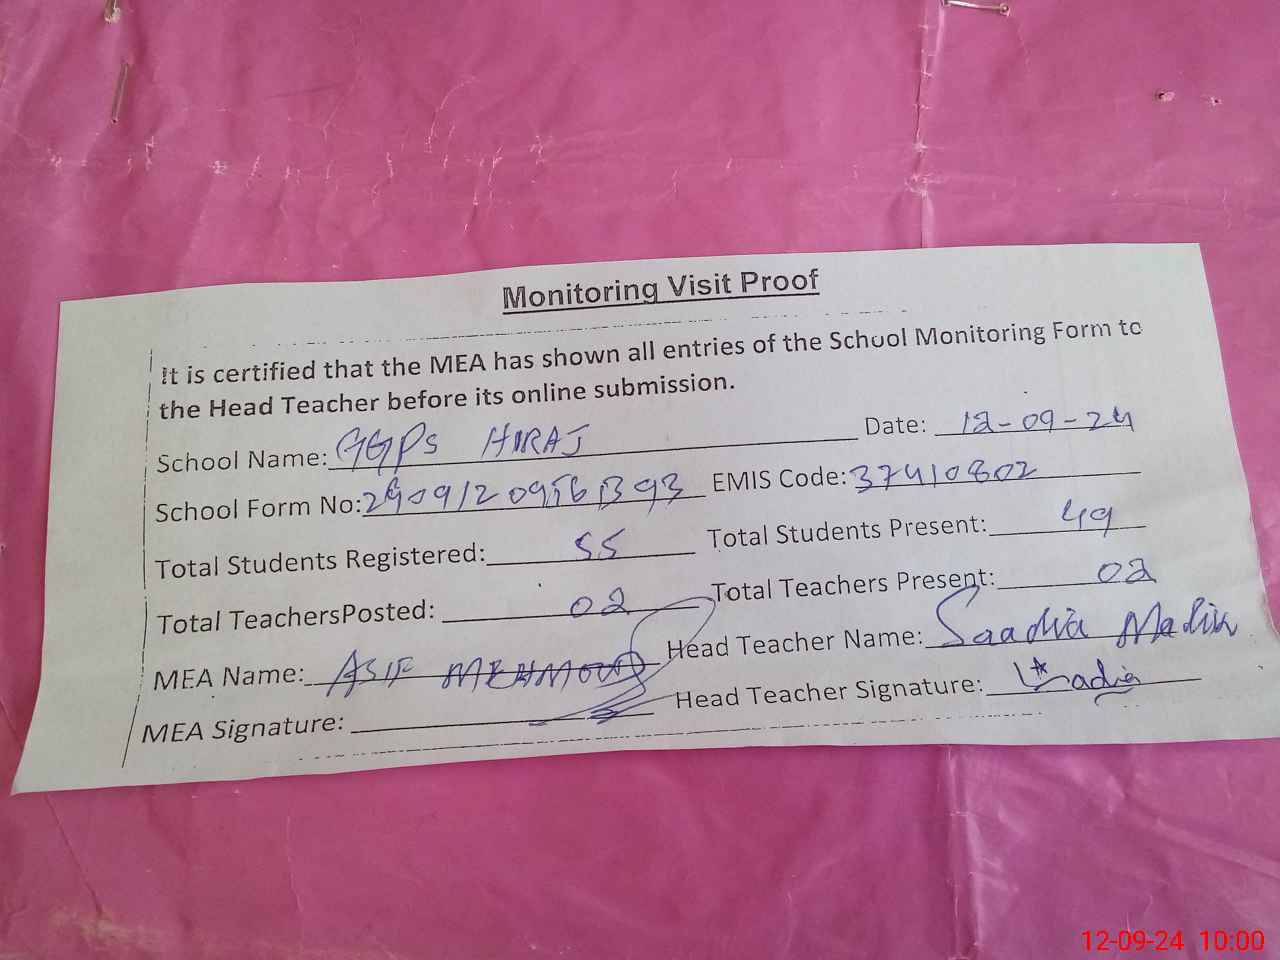 Monitoring Visit Proof
It is certified that the MEA has shown all entries of the School Monitoring Form to
the Head Teacher before its online submission.
School Name: GGPS HIRAJ Date: 12-09-24
School Form No: EMIS Code: 37410802
Total Students Registered: 55 Total Students Present: 49
Total TeachersPosted: 02 Total Teachers Present: 02
MEA Name: ASIF MEHMOOD Head Teacher Name: Saadia Malik
MEA Signature: Head Teacher Signature: Sadia
12-09-24 10:00